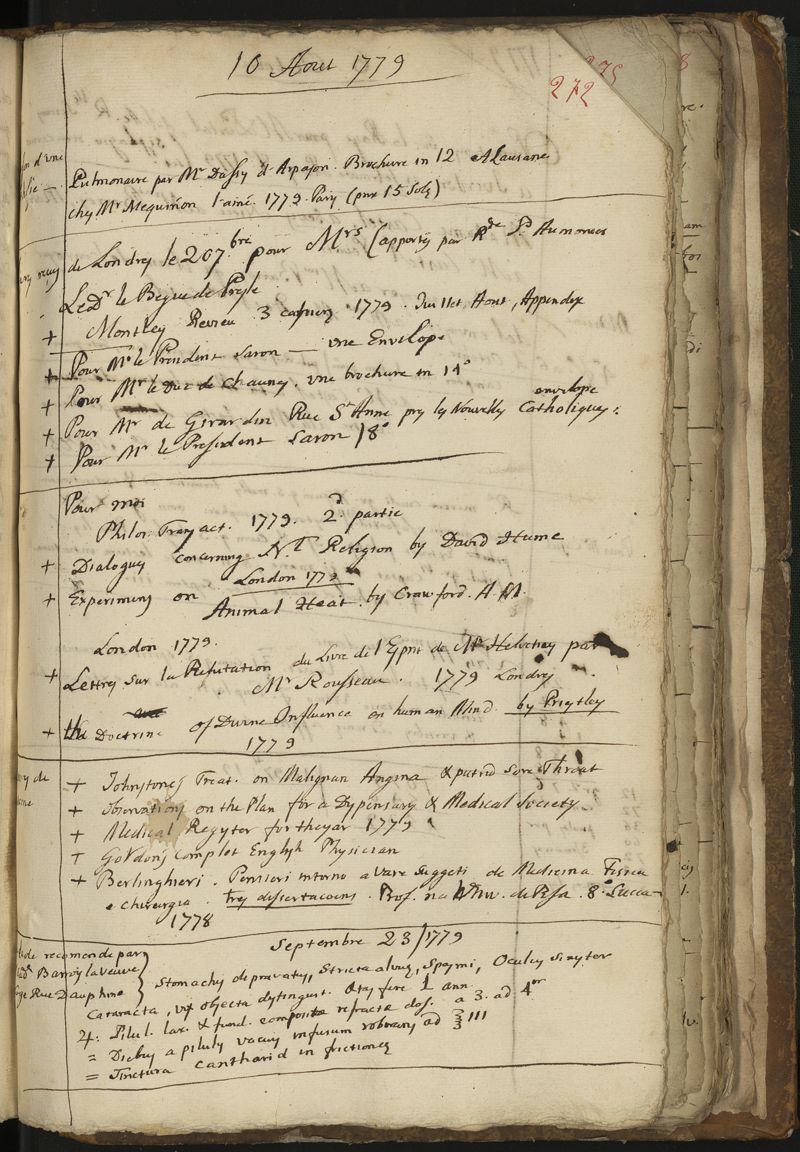 10 Aout 1779
275
272
Pulmonaire par Mr Dassy d'Arpajon. Brochure in 12 a Lausane
chez Mr Mequinion l'ainé. 1779. Pary (prix 15 Solz)
de Londrez le 20 7.bre pour Mrs (apportez par Rde Pd Aumonier
Ledr le Begue de Presle
+ Montley Revieu 3 cahiers 1779. Juillet Aout, Appendix
+ Pour Mr le President Saron — une Envelope
+ Pour Mr le Duc de Chauney, une brochure in 14°
+ Pour Mr de Girardin Rue St Anne prez les Nouvelles Catholiques: envelope
+ Pour Mr le President Saron 18°
Pour moi
Philos. Transact. 1779. 2d partie
+ Dialogues concerning N.l Religion by David Hume
London 1779
+ Experiments on Animal Heat. by Crawford. A M.
London 1779.
+ Lettres sur la Refutation du Livre de l'Esprit de Mr Helvetius par
Mr Rousseau. 1779 Londres
+ the Doctrine of Divine Influence on human Mind. by Priestley
1779
+ Johnstones Treat. on Malignan Angina & putrid Sore Throat
+ Observations on the Plan for a Dispensary & Medical Society
+ Medical Register for the year 1779
+ Gordons complet English Physician
+ Berlinghieri. Pensieri intorno a vari suggeti de Medicina Fisica
e chirurgia. trez dissertacoins. Prof. na Univ. de Pisa. 8.° Lucca
1778
Septembre 23/1779
de recomende par
Barroiz la veuve
Rue Dauphine
Stomachy depravaty, Stricta alvus, Spasmi, Oculus sinister
Cataracta, vix objecta distinguit. Etas fere 1 ann.
Pilul. lax. & fund. composite refracta dos. a 3. ad 4or
= Diebus a pilulis vacuis infusum roborans ad ℥ III
= Tinctura cantharid in frictiones